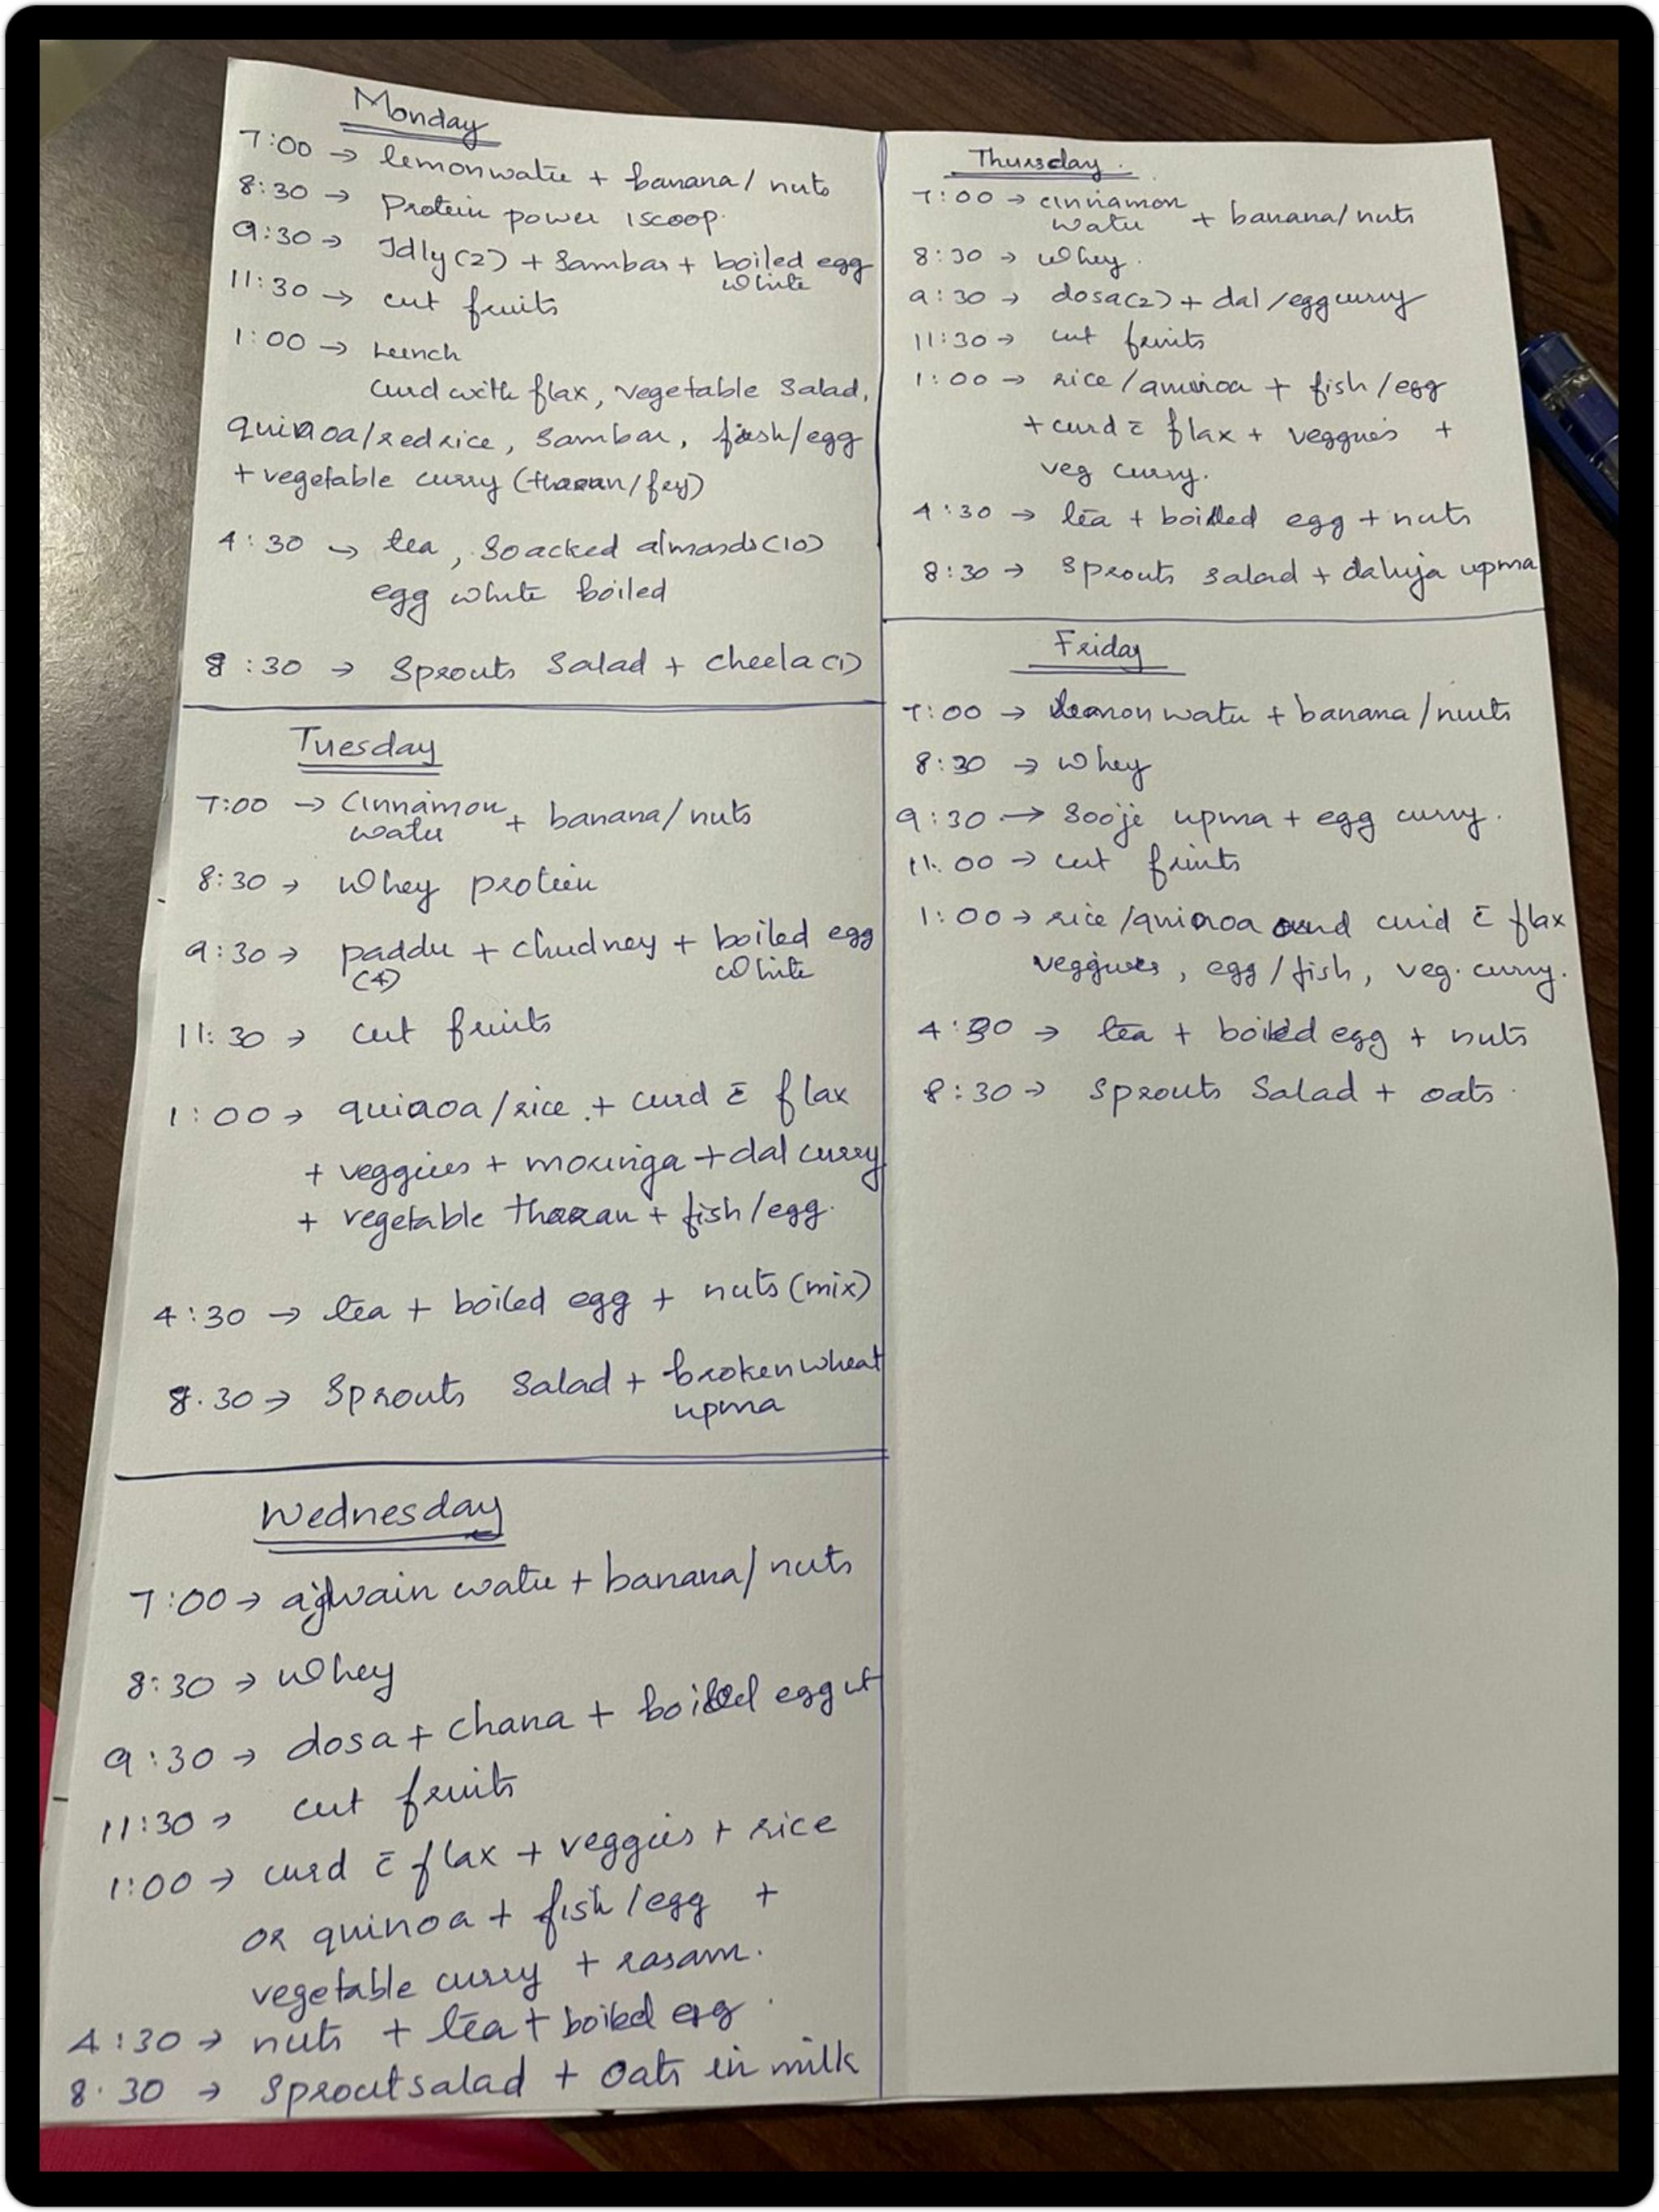 Monday
7:00 → lemonwater + banana/ nuts
8:30 → Protein power 1scoop.
9:30 → Idly(2) + Sambar + boiled egg
white
11:30 → cut fruits
1:00 → Lunch
Curd with flax, vegetable Salad,
quinoa/redrice, Sambar, fish/egg
+ vegetable curry (thoran/fry)
4:30 → tea, Soacked almonds(10)
egg white boiled
8:30 → Sprouts Salad + Cheela(1)
Tuesday
7:00 → Cinnamon + banana/nuts
water
8:30 → Whey protein
9:30 → paddu + chudney + boiled egg
(4) White
11:30 → Cut fruits
1:00 → quinoa/rice + curd c̄ flax
+ veggies + moringa + dal curry
+ vegetable thoran + fish/egg.
4:30 → tea + boiled egg + nuts (mix)
8.30 → Sprouts Salad + brokenwheat
upma
Wednesday
7:00 → ajwain water + banana/nuts
8:30 → Whey
9:30 → dosa + chana + boiled egg
11:30 → cut fruits
1:00 → curd c̄ flax + veggies + rice
or quinoa + fish/egg +
vegetable curry + rasam.
4:30 → nuts + tea + boiled egg.
8.30 → Sproutsalad + Oats in milk
Thursday.
7:00 → cinnamon + banana/nuts
water
8:30 → Whey.
9:30 → dosa(2) + dal/eggcurry
11:30 → cut fruits
1:00 → rice/ + fish/egg
+ curd c̄ flax + veggies +
veg curry.
4:30 → tea + boilled egg + nuts
8:30 → Sprouts Salad + upma
Friday
7:00 → lemon water + banana/nuts
8:30 → Whey
9:30 → Sooji upma + egg curry.
11:00 → cut fruits
1:00 → rice/quinoa and curd c̄ flax
veggies, egg/fish, veg. curry.
4:30 → tea + boiled egg + nuts
8:30 → Sprouts Salad + oats.